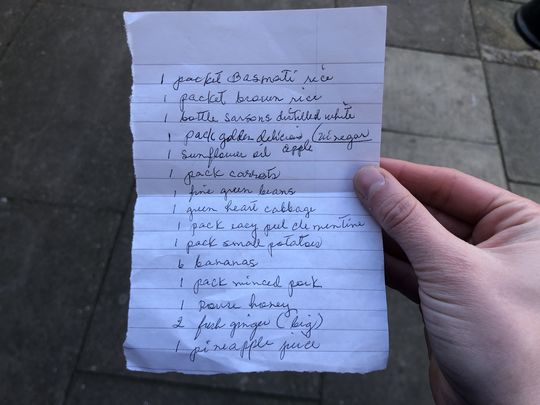 1 packet Basmati rice
1 packet brown rice
1 bottle Sarsons distilled white
1 pack golden delicious (vinegar
1 sunflower oil apple
1 pack carrots
1 fine green beans
1 green heart cabbage
1 pack eacy peel clementine
1 pack small potatoes
6 bananas
1 pack minced pork
1 honey
2 fresh ginger (big)
1 pineapple juice